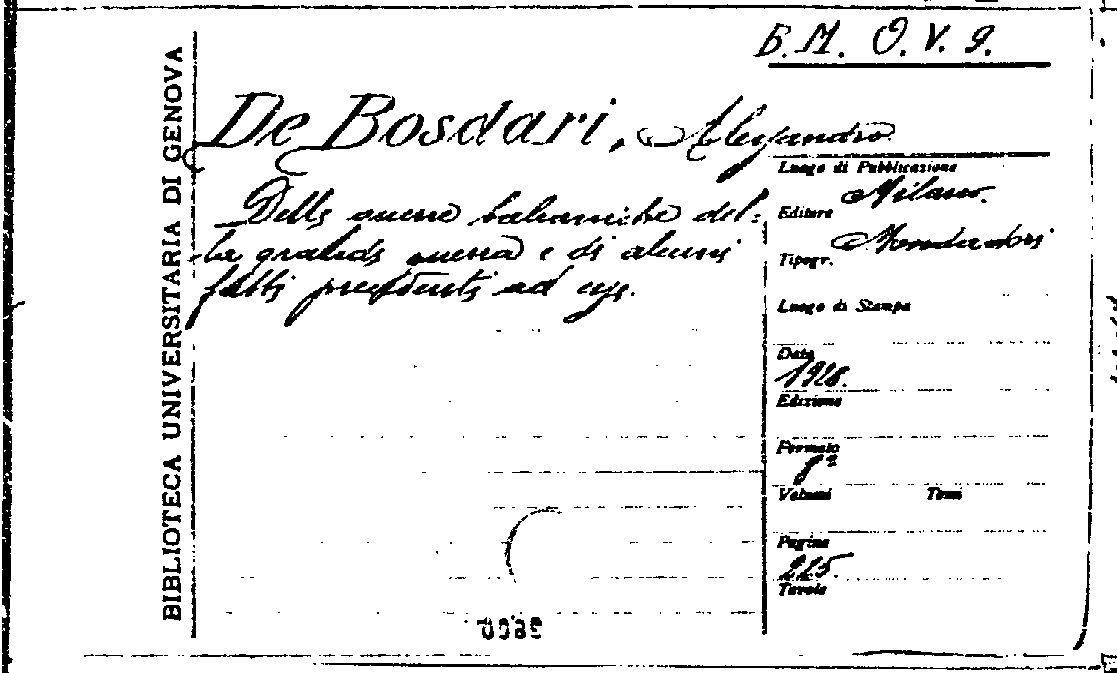 B.M. O.V. 9.
BIBLIOTECA UNIVERSITARIA DI GENOVA
De Bosdari, Alessandro
Delle guerre balcaniche del=
la grande guerra e di alcuni
fatti precedenti ad esse.
Luogo di Pubblicazione
Milano.
Editore
Mondadori
Tipogr.
Luogo di Stampa
Data
1928.
Edizione
Formato
8º
Volumi Tomi
Pagine
225.
Tavole